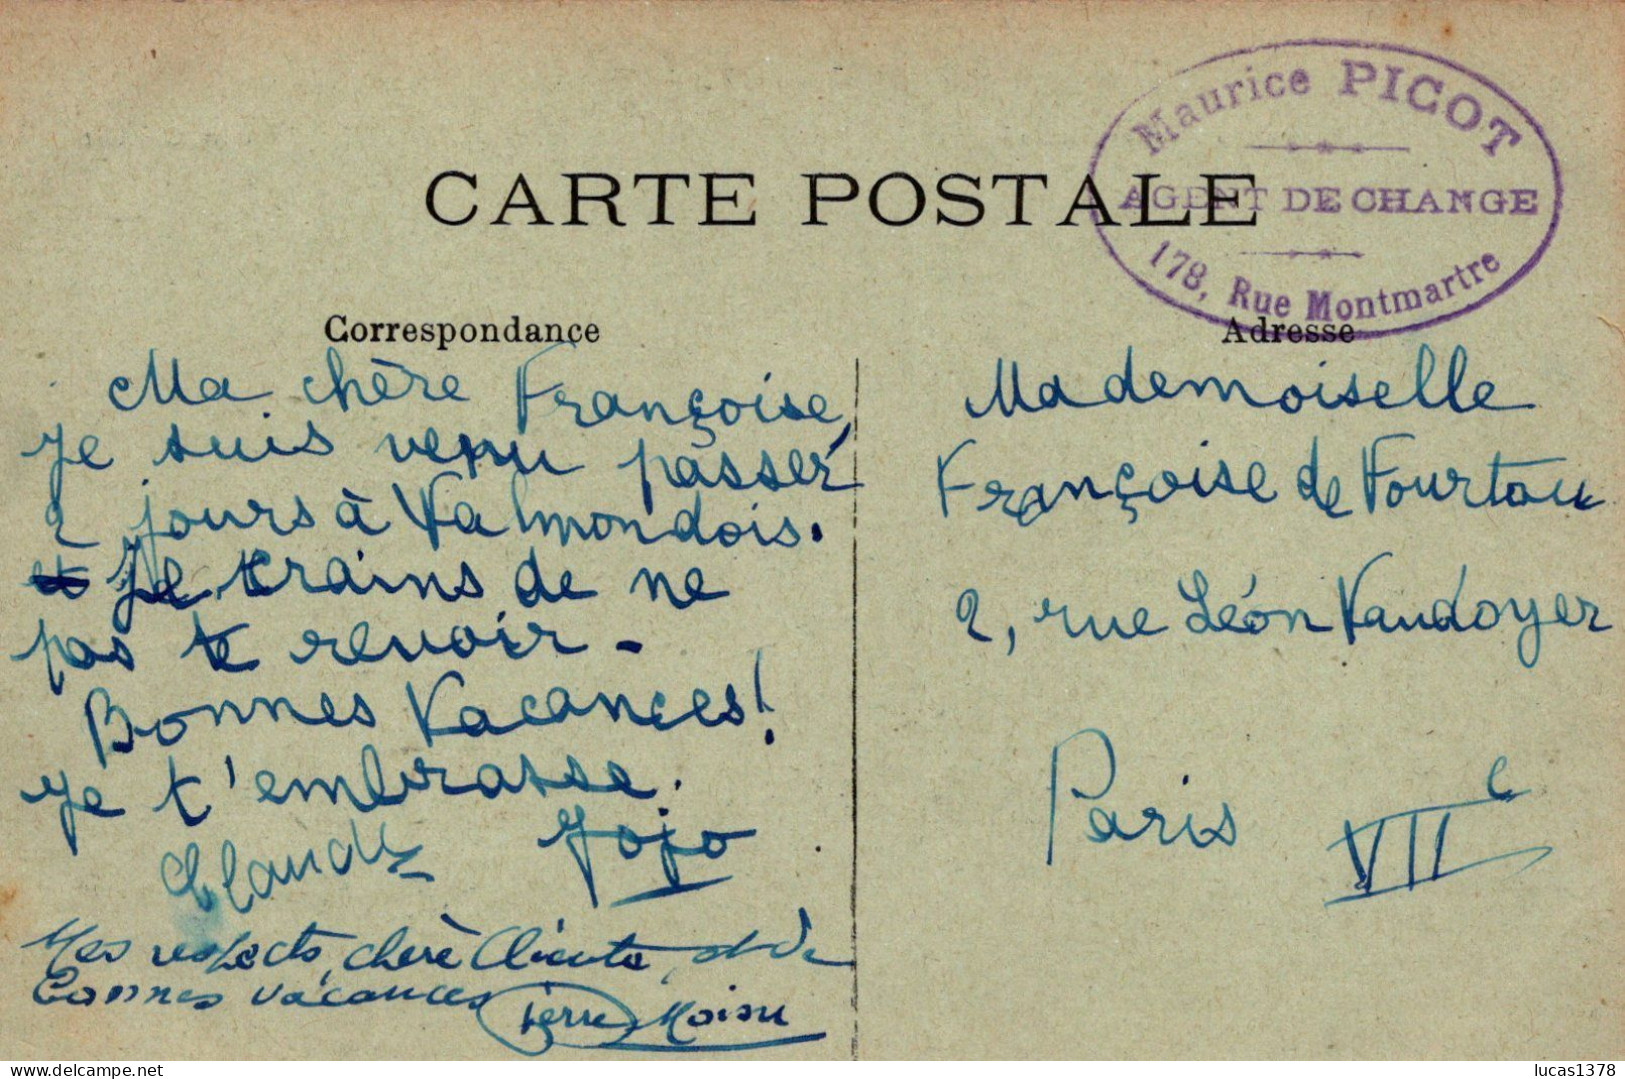 Maurice PICOT
AGENT DE CHANGE
178, Rue Montmartre
CARTE POSTALE
Correspondance
Ma chère Françoise,
Je suis venu passer
2 jours à Valmondois.
Je trains de ne
pas te revoir -
Bonnes Vacances!
Je t'embrasse.
Claude Jojo
Mes respects, chère Cliente, et de
bonnes vacances Pierre
Adresse
Mademoiselle
Françoise de Fourtou
2, rue Léon Vaudoyer
Paris VIIe
delcampe.net
lucas1378